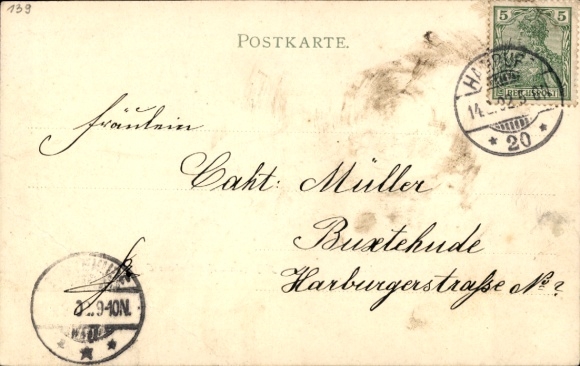 139
POSTKARTE.
5 5
REICHSPOST
14.
* 20 *
Fräulein
Caht: Müller
Buxtehude
Harburgerstraße No ?
9-10N.